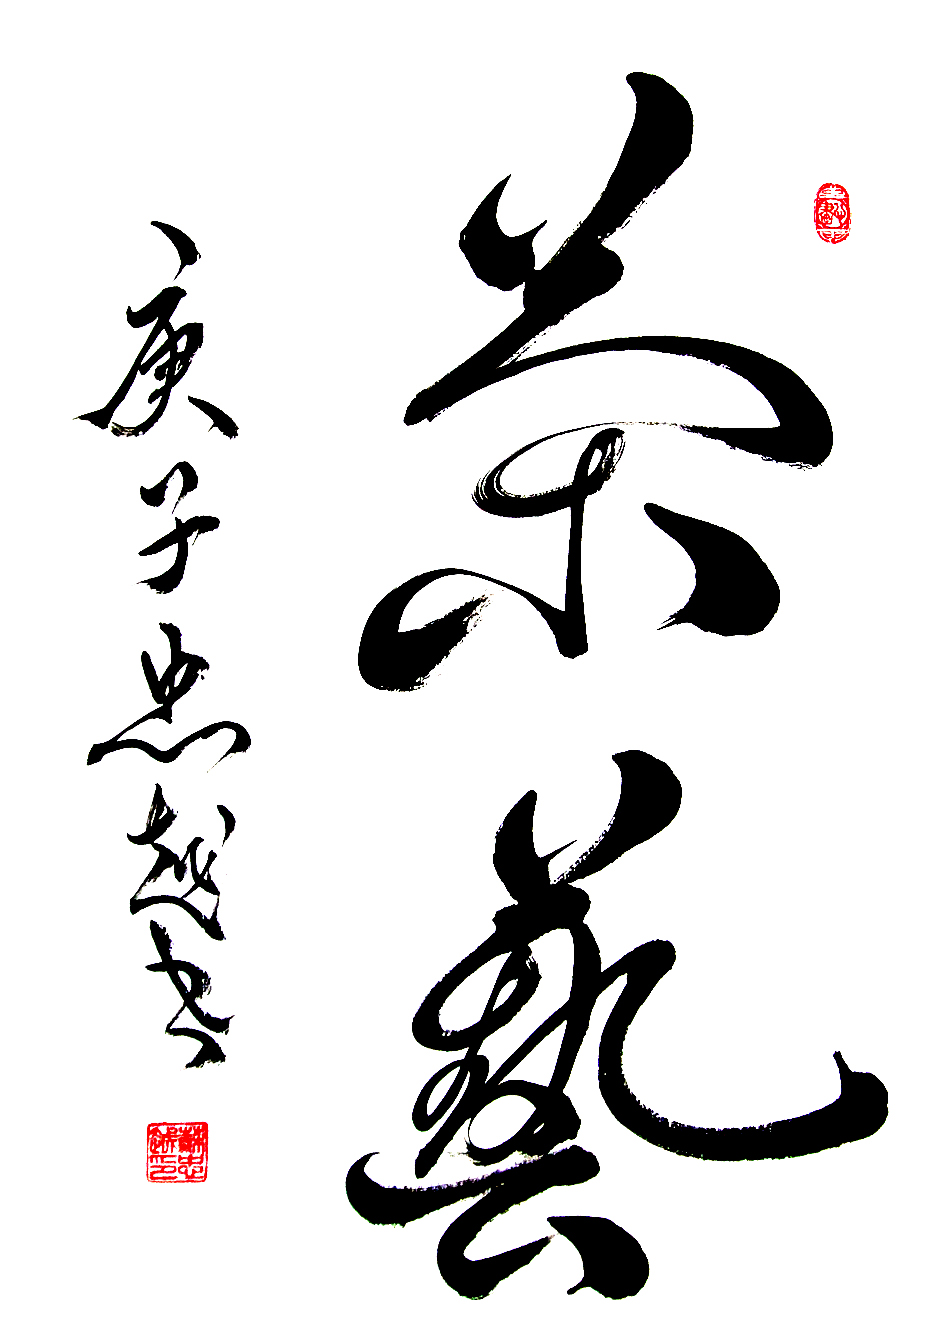 茶藝
庚子忠越书